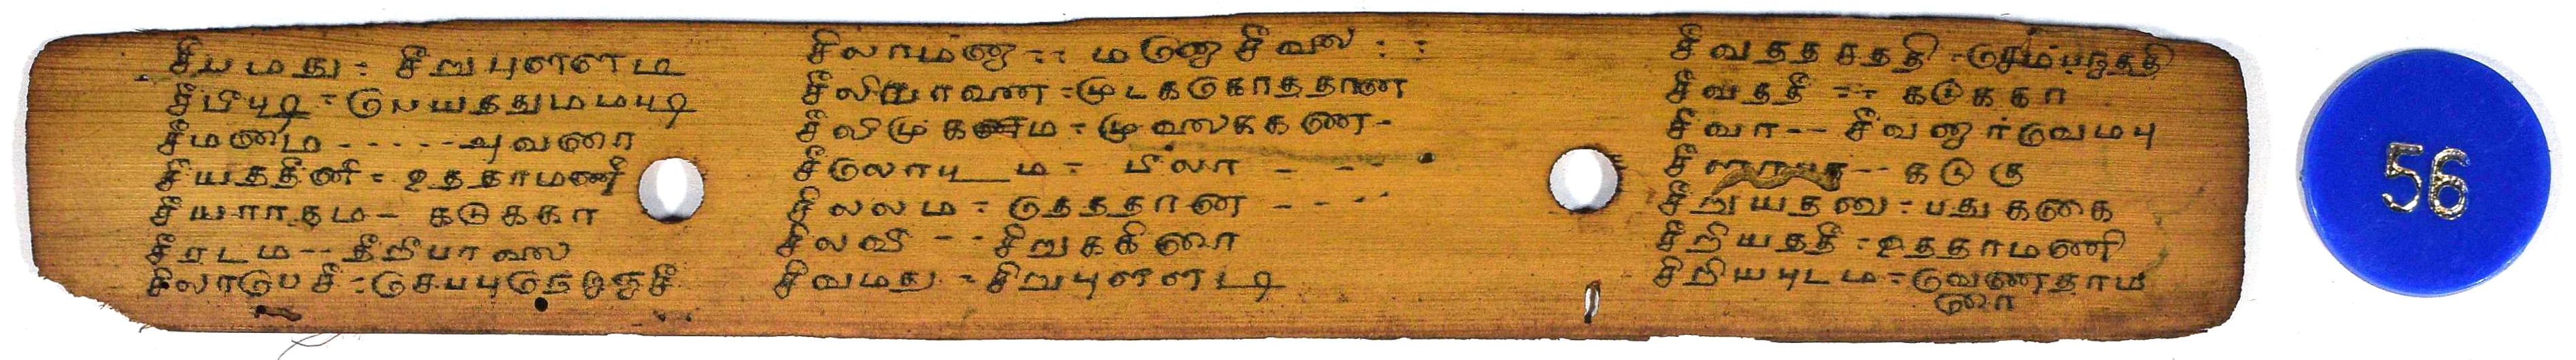 சீயமது = சீறுபுளளடி
சீபிபுடி = பெயததுமமபுடி
சீமணம - - - - - அவணா
சீயததீணி = உததாமணி
சீயாாதம - கடுககா
சீரடம - - தீறிபாலை
சீலாபெசீ = செபபுநெருஞசீ
சிலாமனு - : மனெசீலை : :
சீலிறுாவண = முடகொததாண
சீலிமுகணம = முலைககண -
சீலொபுடம = பீலா - - -
சீலலம = தெததாண - - - -
சிலவி - - சிறுககிணா
சீவமது = சிறுபுளளடி
சீவததசததி = செமபருததி
சீவததீ - - கடுககா
சீவா - - சீவனார்வெமபு
கடுகு
சீறுயதலை = பதுகதகை
சீறியததீ = உததாமணி
சிறியபுடம = வெணதாம
ணா
56